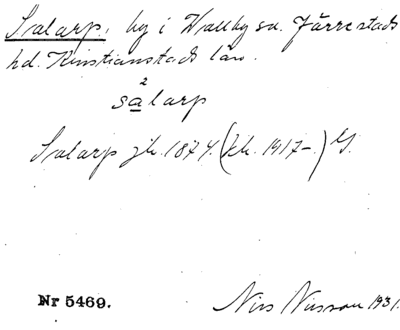 Salarp, by i Wallby sn. Järrestads
hd. Kristianstads län.
2
sạlarp
Salarp jb. 1874. (kb. 1917-.) G.
Nr 5469.
Nils Nilsson 1931.